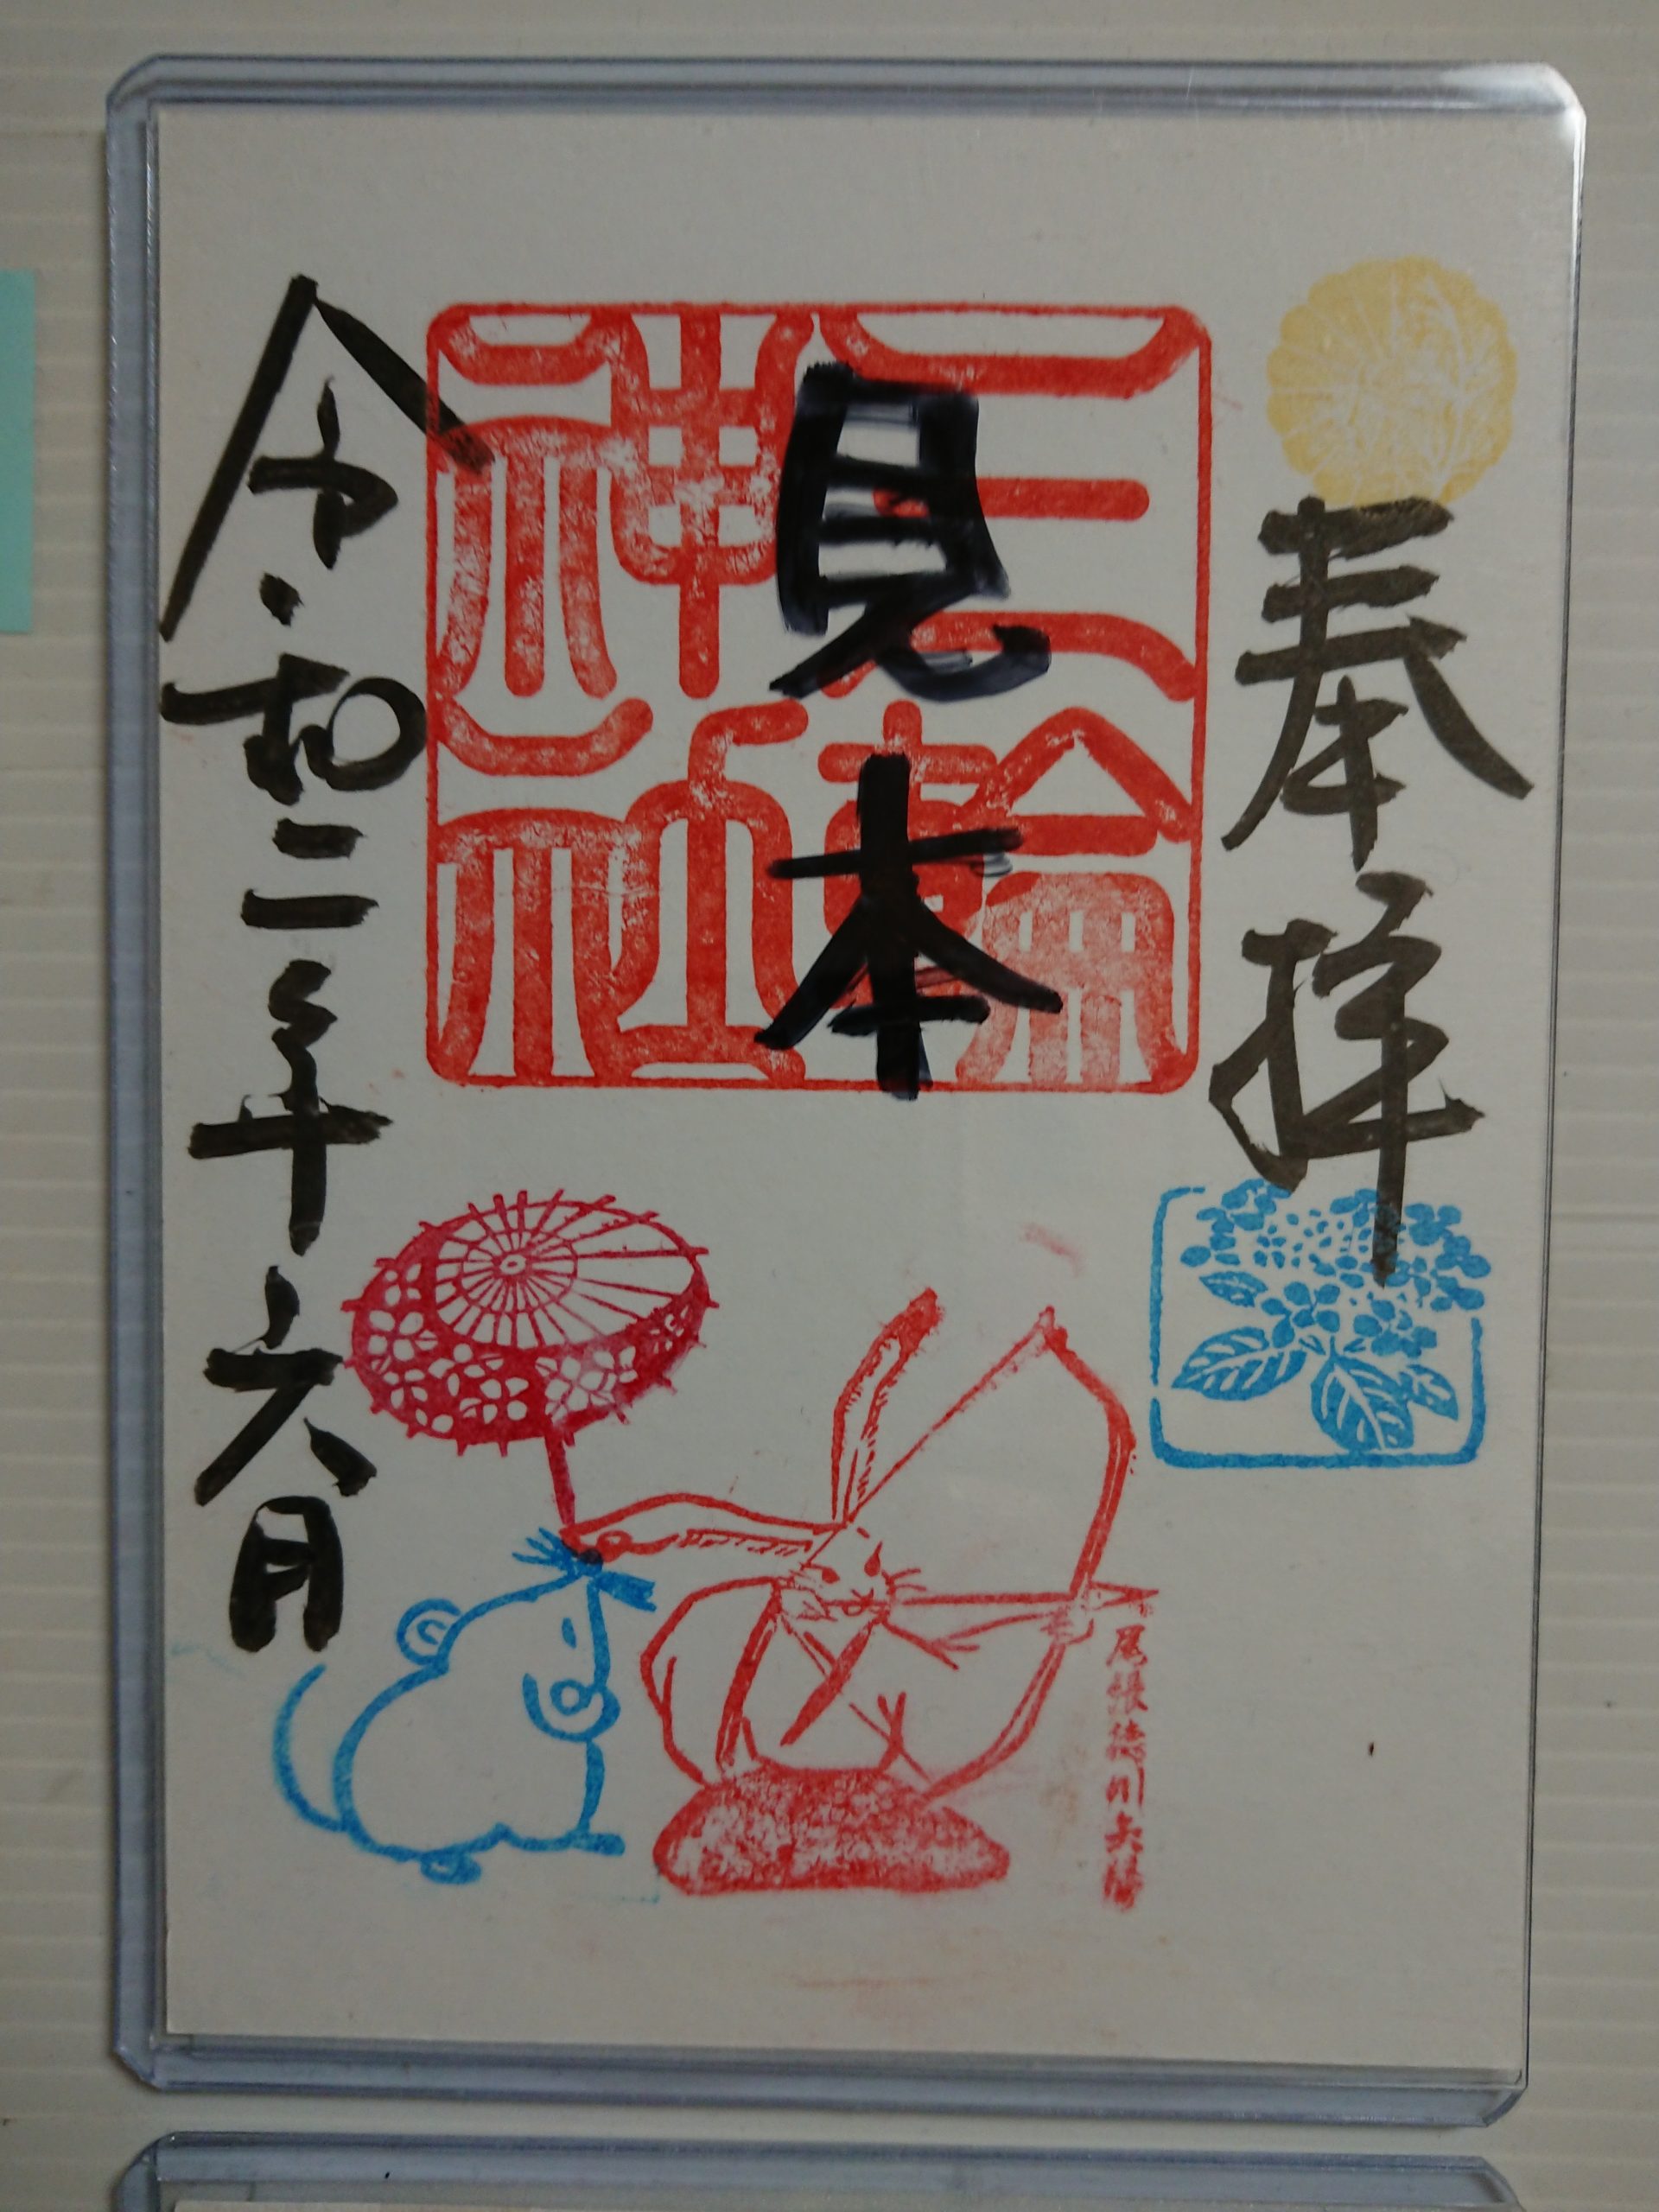 奉拝
三輪
神社
見本
令和二年六月
尾張徳川矢場